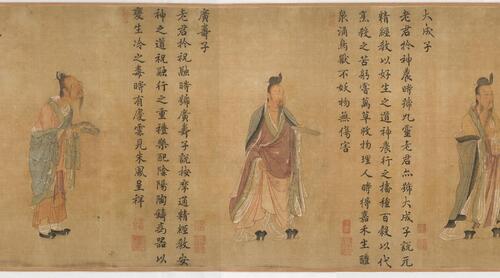 大成子
老君於神農時號九靈老君亦號大成子說元
精經教以好生之道神農行之播種百穀以代
烹殺之苦躬嘗萬草救物理人時得嘉禾生醴
泉涌鳥獸不妖物無傷害
廣壽子
老君於祝融時號廣壽子說按摩通精經教安
神之道祝融行之重禮樂配陰陽陶鑄為器以
變生冷之毒時有慶雲見朱鳳呈祥